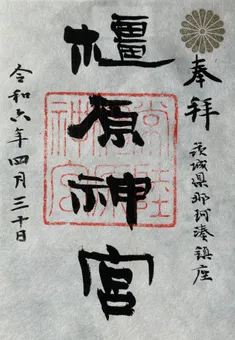 奉拝
茨城県那珂湊鎮座
橿原神宮
令和六年四月三十日